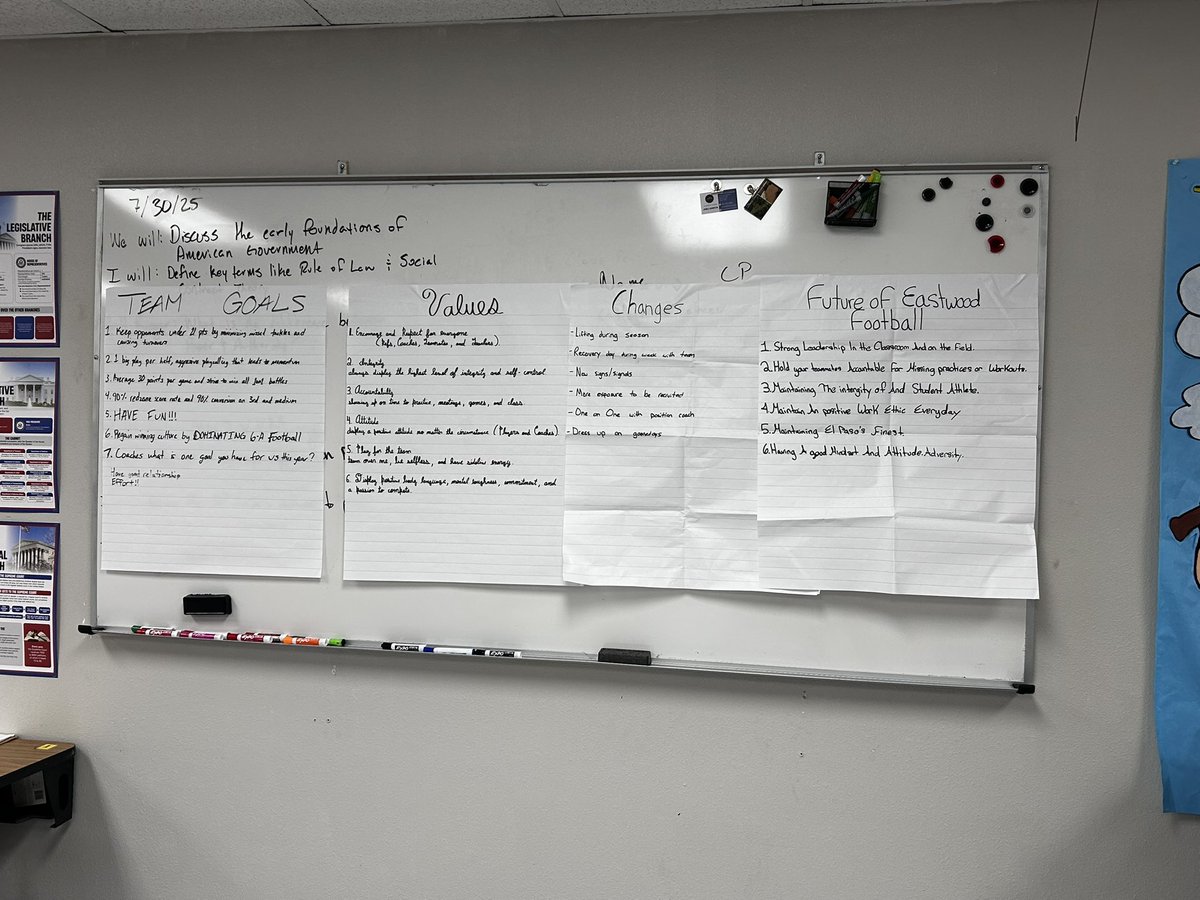 7/30/25
We will: Discuss the early foundations of
American Government
I will: Define key terms like Rule of Law & Social
CP
TEAM GOALS
1. Keep opponents under 21 pts by minimizing missed tackles and
causing turnovers
2. 1 big play per half, aggressive playcalling that leads to momentum
3. Average 30 points per game and strive to win all foot battles
4. 90% redzone score rate and 90% conversion on 3rd and medium
5. HAVE FUN!!!
6. Regain winning culture by DOMINATING 6-A Football
7. Coaches what is one goal you have for us this year?
Have good relationship
Effort!!
Values
1. Encourage and Respect for everyone
(Refs, Coaches, Teammates, and Teachers).
2. Integrity
always display the highest level of integrity and self-control
3. Accountability
showing up on time to practice, meetings, games, and class.
4. Attitude
display a positive attitude no matter the circumstance (Players and Coaches).
5. Play for the team
team over me, be selfless, and have sideline energy.
6. Display positive body language, mental toughness, commitment, and
a passion to compete.
Changes
- Lifting during season
- Recovery day during week with team
- New signs/signals
- More exposure to be recruited
- One on One with position coach
- Dress up on gamedays
Future of Eastwood
Football
1. Strong Leadership In the Classroom And on the Field.
2. Hold your teammates Accountable For Missing practices or Workouts.
3. Maintaining The intergity of And Student Athlete.
4. Maintain An positive Work Ethic Everyday
5. Maintaining El Paso's Finest.
6. Having A good Mindset And Attitude. Adversity.
THE
LEGISLATIVE
BRANCH